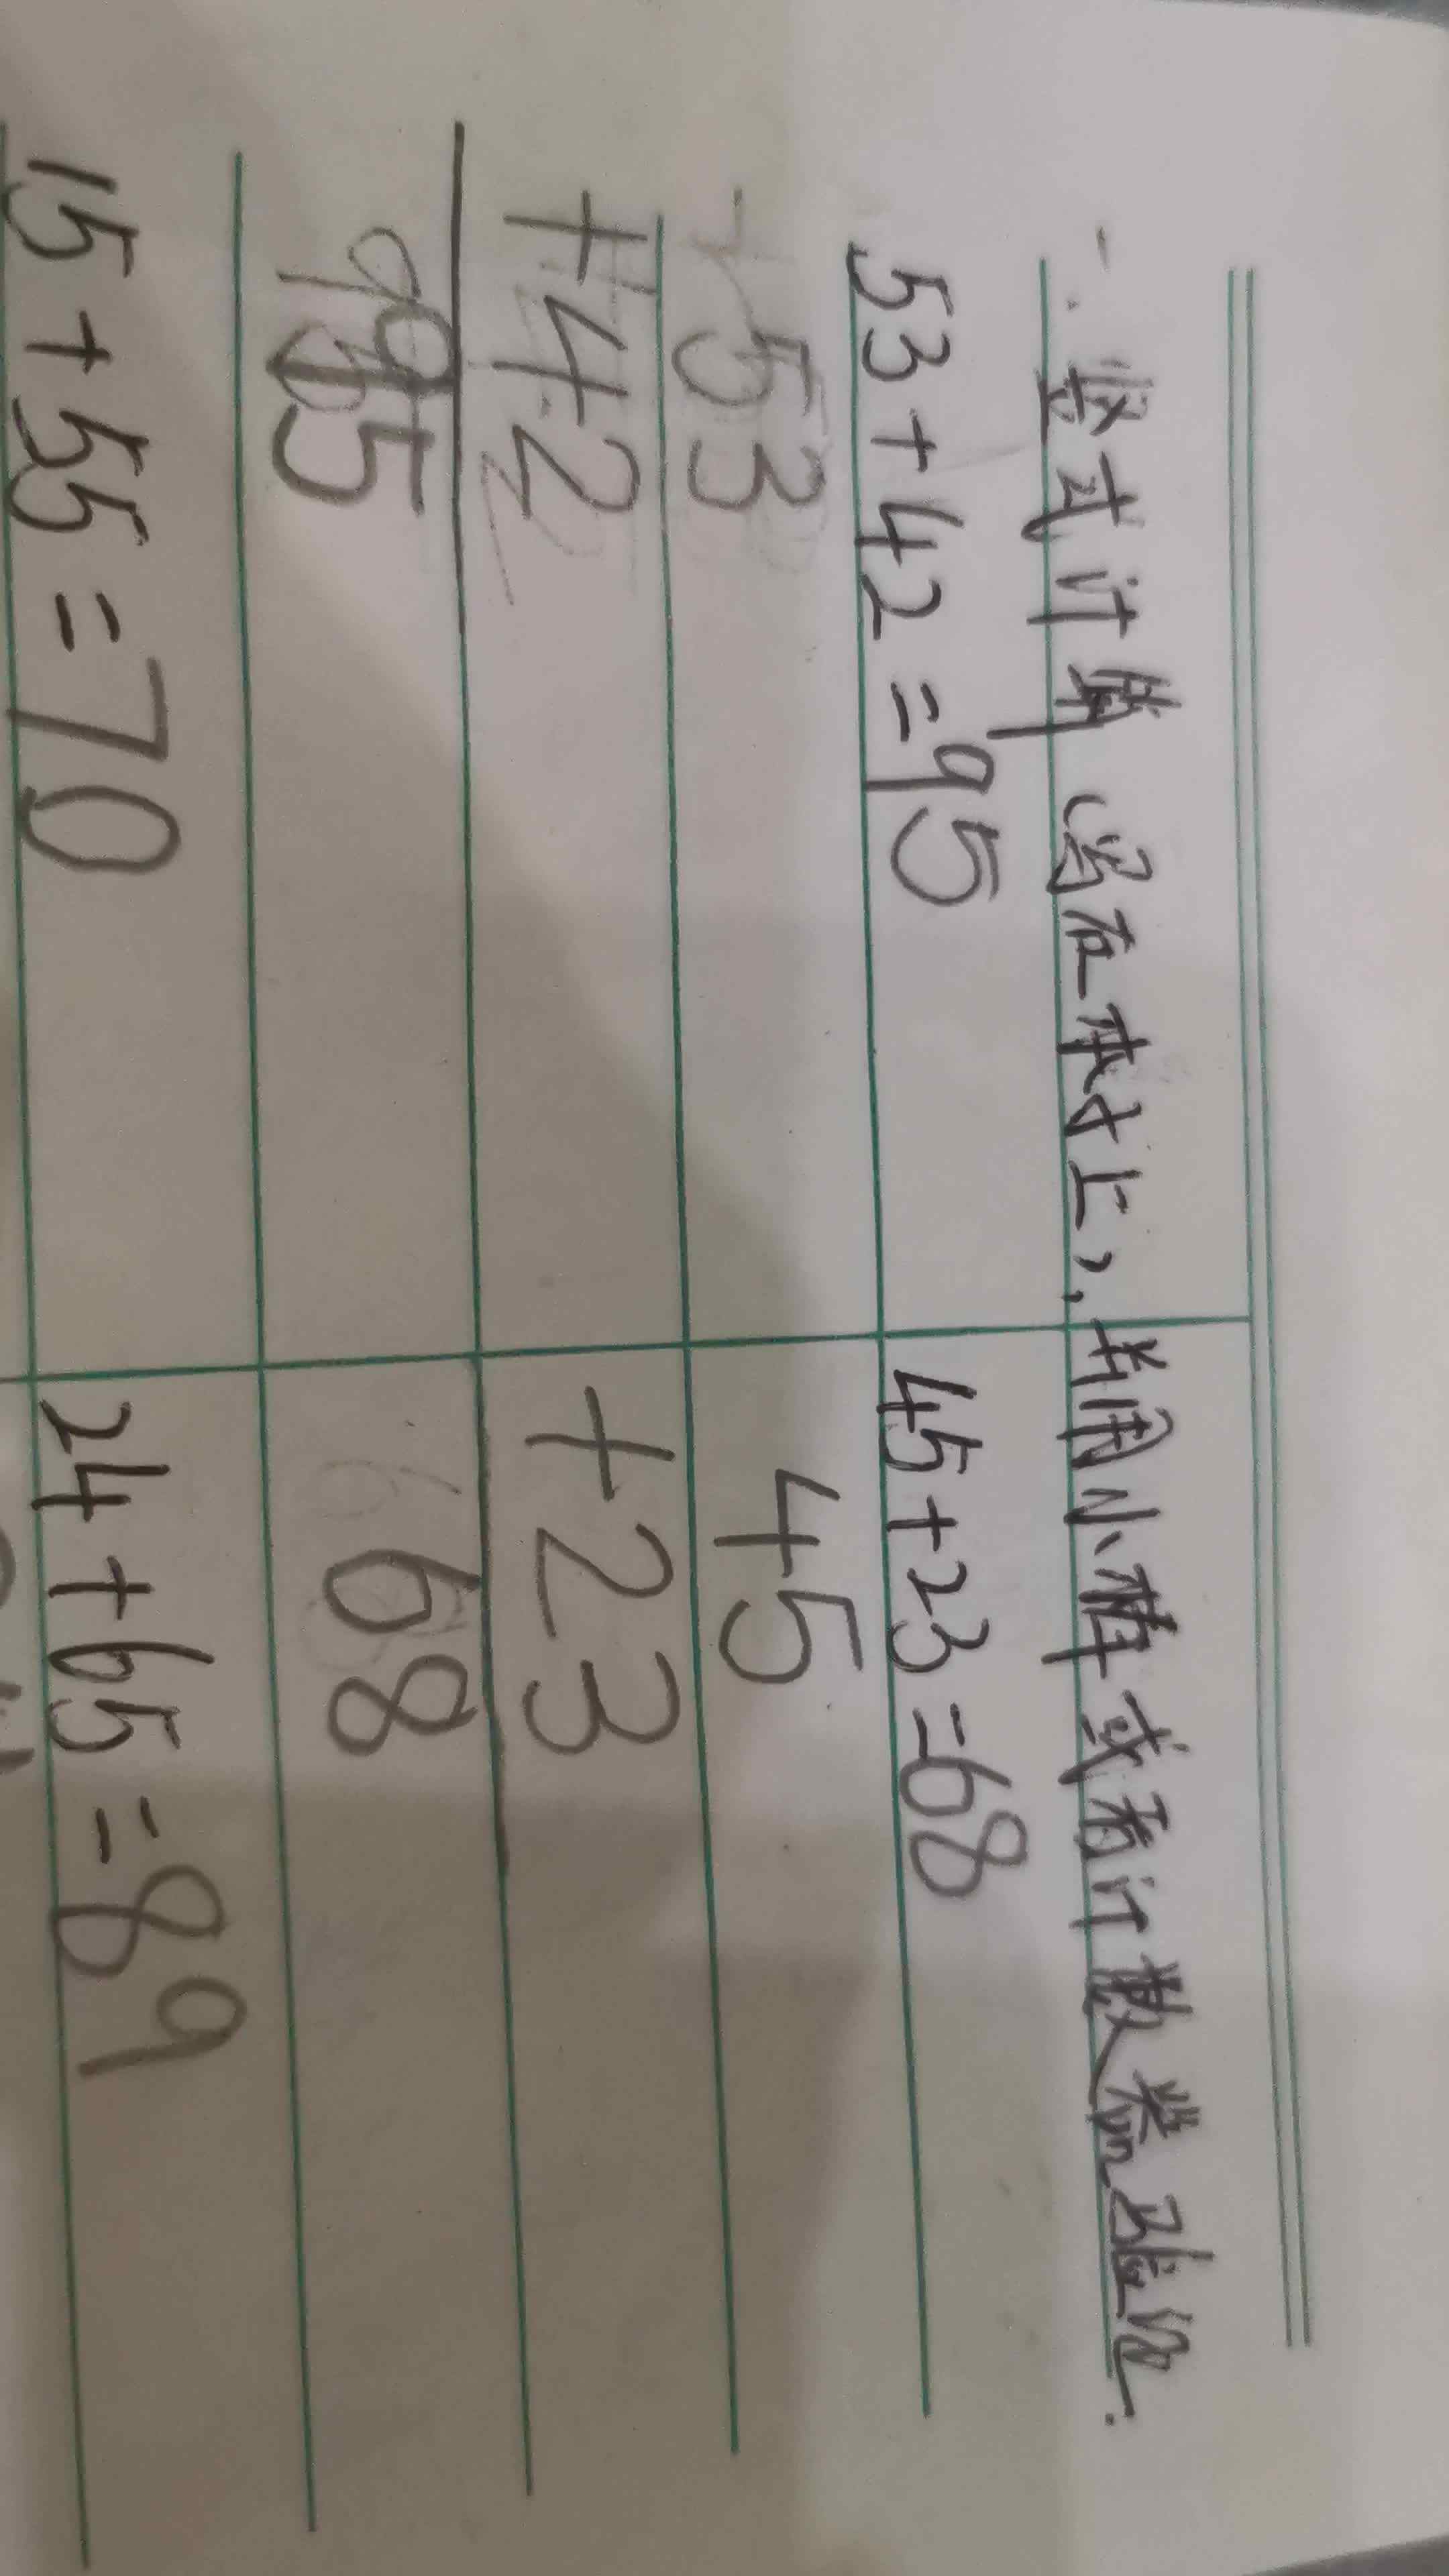 一. 竖式计算 (写在本子上), 并用小棒或者计数器验证.
53+42=95 45+23=68
53 45
+42 +23
95 68
15+55=70 24+65=89